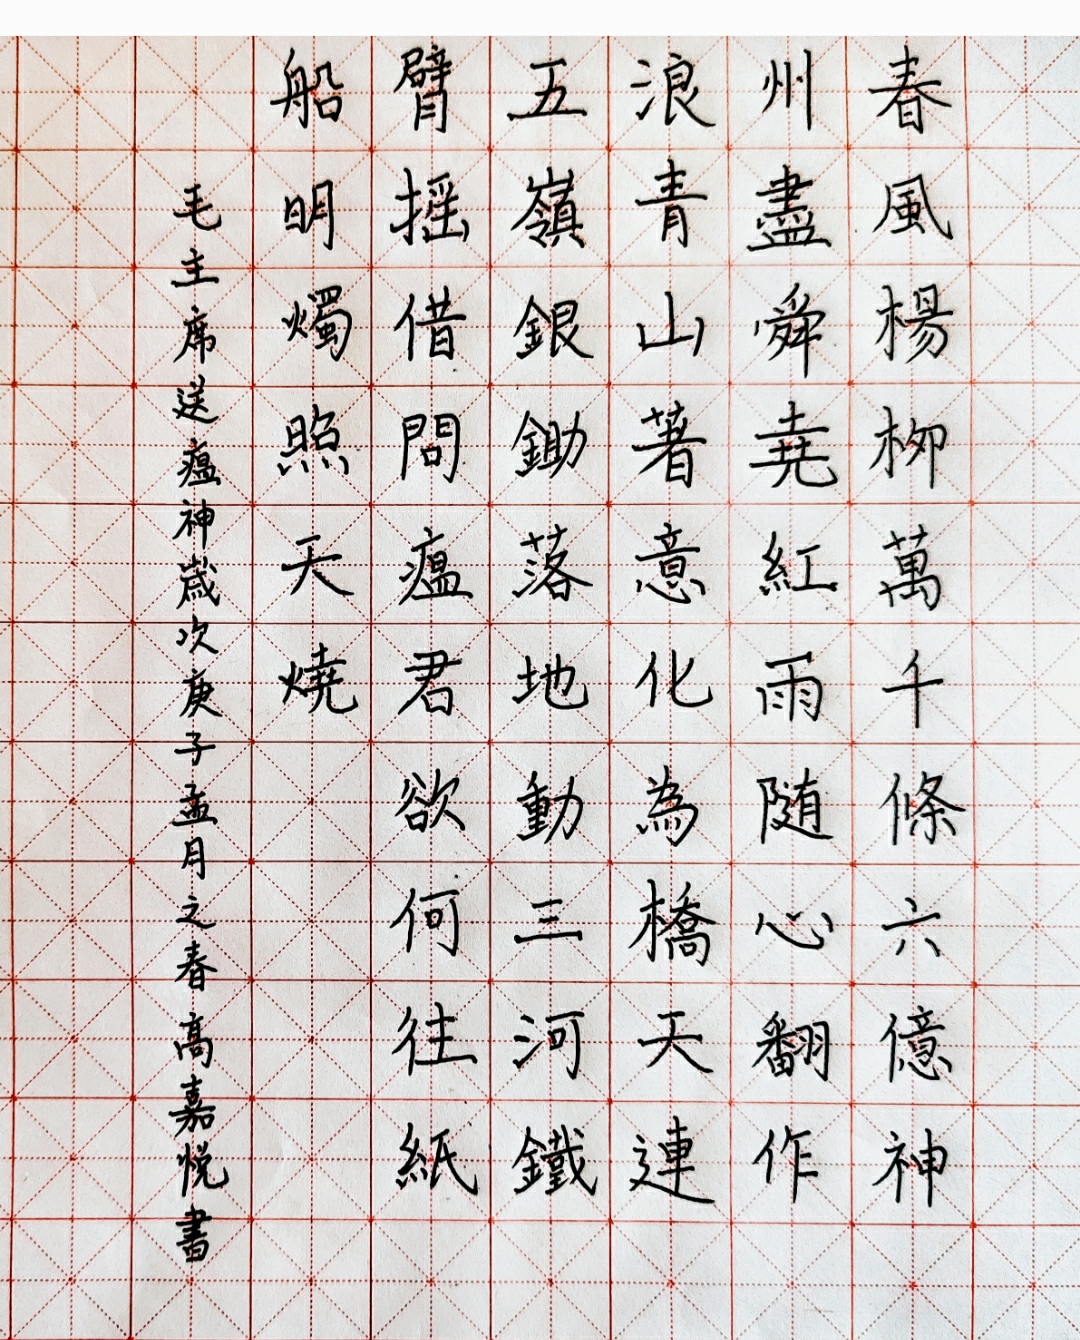 春風楊柳萬千條六億神
州盡舜堯紅雨随心翻作
浪青山著意化為橋天連
五嶺銀鋤落地動三河鐵
臂摇借問瘟君欲何往紙
船明燭照天燒
毛主席送瘟神歲次庚子孟月之春高嘉悦書